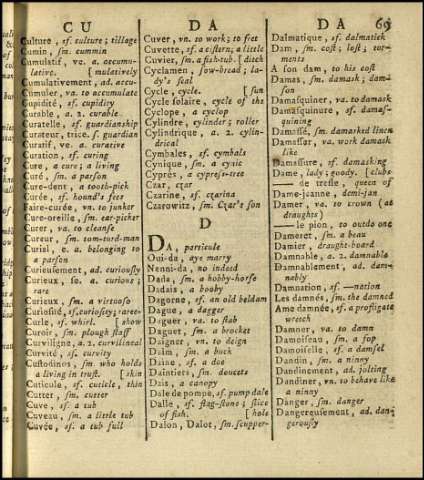 C U
D A
D A 69
Culture, sf. culture; tillage
Cumin, sm. cummin
Cumulatif, ve. a. accumu-
lative. [mulatively
Cumulativement, ad. accu-
Cumuler, va. to accumulate
Cupidité, sf. cupidity
Curable, a. 2. curable
Curatelle, sf. guardianship
Curateur, trice. s. guardian
Curatif, ve. a. curative
Curation, sf. curing
Cure, a cure; a living
Curé, sm. a parson
Cure-dent, a tooth-pick
Curée, sf. hound's fees
Faire-cu-ée, va. to junker
Cure-oreille, sm. ear-picker
Curer, va. to cleanse
Cureur, sm. tom-turd-man
Curial, e. a. belonging to
a parson
Curieusement, ad. curiously
Curieux, se. a. curious;
rare
Curieux, sm. a virtuoso
Curiosité, sf. curiosity; rare-
Curle, sf. whirl. [show
Curoir, sm. plough staff
Curviligne, a. 2. curvilineal
Curvité, sf. curvity
Custodinos, sm. who holds
a living in trust. [skin
Cuticule, sf. cuticle, thin
Cutter, sm. cutter
Cuve, sf. a tub
Cuveau, sm. a little tub
Cuvée, sf. a tub full
Cuver, vn. to work; to fret
Cuvette, sf. a cistern; a little
Cuvier, sm. a fish-tub. [ditch
Cyclamen, sow-bread; la-
dy's seal
Cycle, cycle. [sun
Cycle solaire, cycle of the
Cyclope, a cyclop
Cylindre, cylinder; roller
Cylindrique, a. 2. cylin-
drical
Cymbales, sf. cymbals
Cynique, sm. a cynic
Cyprès, a cypress-tree
Czar, czar
Czarine, sf. czarina
Czarowitz, sm. Czar's son
D
DA, particule
Oui-da, aye marry
Nenni-da, no indeed
Dada, sm. a hobby-horse
Dadais, a booby
Dagorne, sf. an old beldam
Dague, a dagger
Daguer, va. to stab
Daguet, sm. a brocket
Daigner, vn. to deign
Daim, sm. a buck
Daine, sf. a doe
Daintiers, sm. doucets
Dais, a canopy
Dale de pompe, sf. pump dale
Dalle, sf. slag-stone; slice
of fish. [hole
Dalon, Dalot, sm. scupper-
Dalmatique, sf. dalmatick
Dam, sm. cost; lost; tor-
ments
A son dam, to his cost
Damas, sm. damask; dam-
son
Damasquiner, va. to damask
Damasquinure, sf. damas-
quining
Damassé, sm. damasked linen
Damasser, va. work damask
like
Damassure, sf. damasking
Dame, lady; goody. [clubs
— de trefle, queen of
Dame-jeanne, demi-jan
Damer, va. to crown (at
draughts)
— le pion, to outdo one
Dameret, sm. a beau
Damier, draught-board
Damnable, a. 2. damnable
Damnablement, ad. dam-
nably
Damnation, sf. —nation
Les damnés, sm. the damned
Ame damnée, sf. a profligate
wretch
Damner, va. to damn
Damoiseau, sm. a fop
Damoiselle, sf. a damsel
Dandin, sm. a ninny
Dandinement, ad. jolting
Dandiner, vn. to behave like
a ninny
Danger, sm. danger
Dangereusement, ad. dan-
gerously